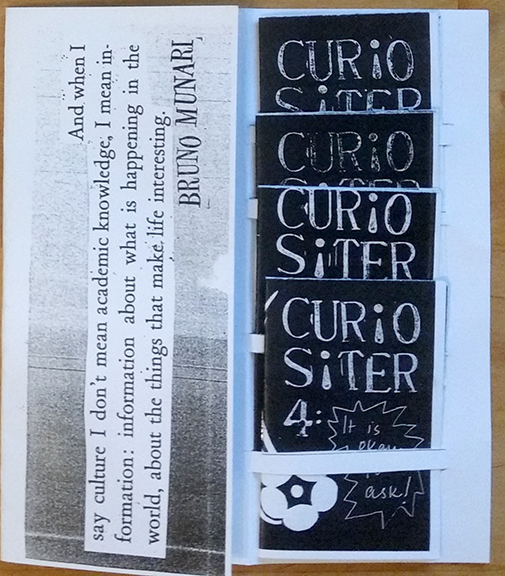 And when I
say culture I don't mean academic knowledge, I mean in-
formation: information about what is happening in the
world, about the things that make life interesting.
BRUNO MUNARI
CURiO
SiTER
CURiO
CURiO
SiTER
CURiO
SiTER
4:
It is
okay
ask!